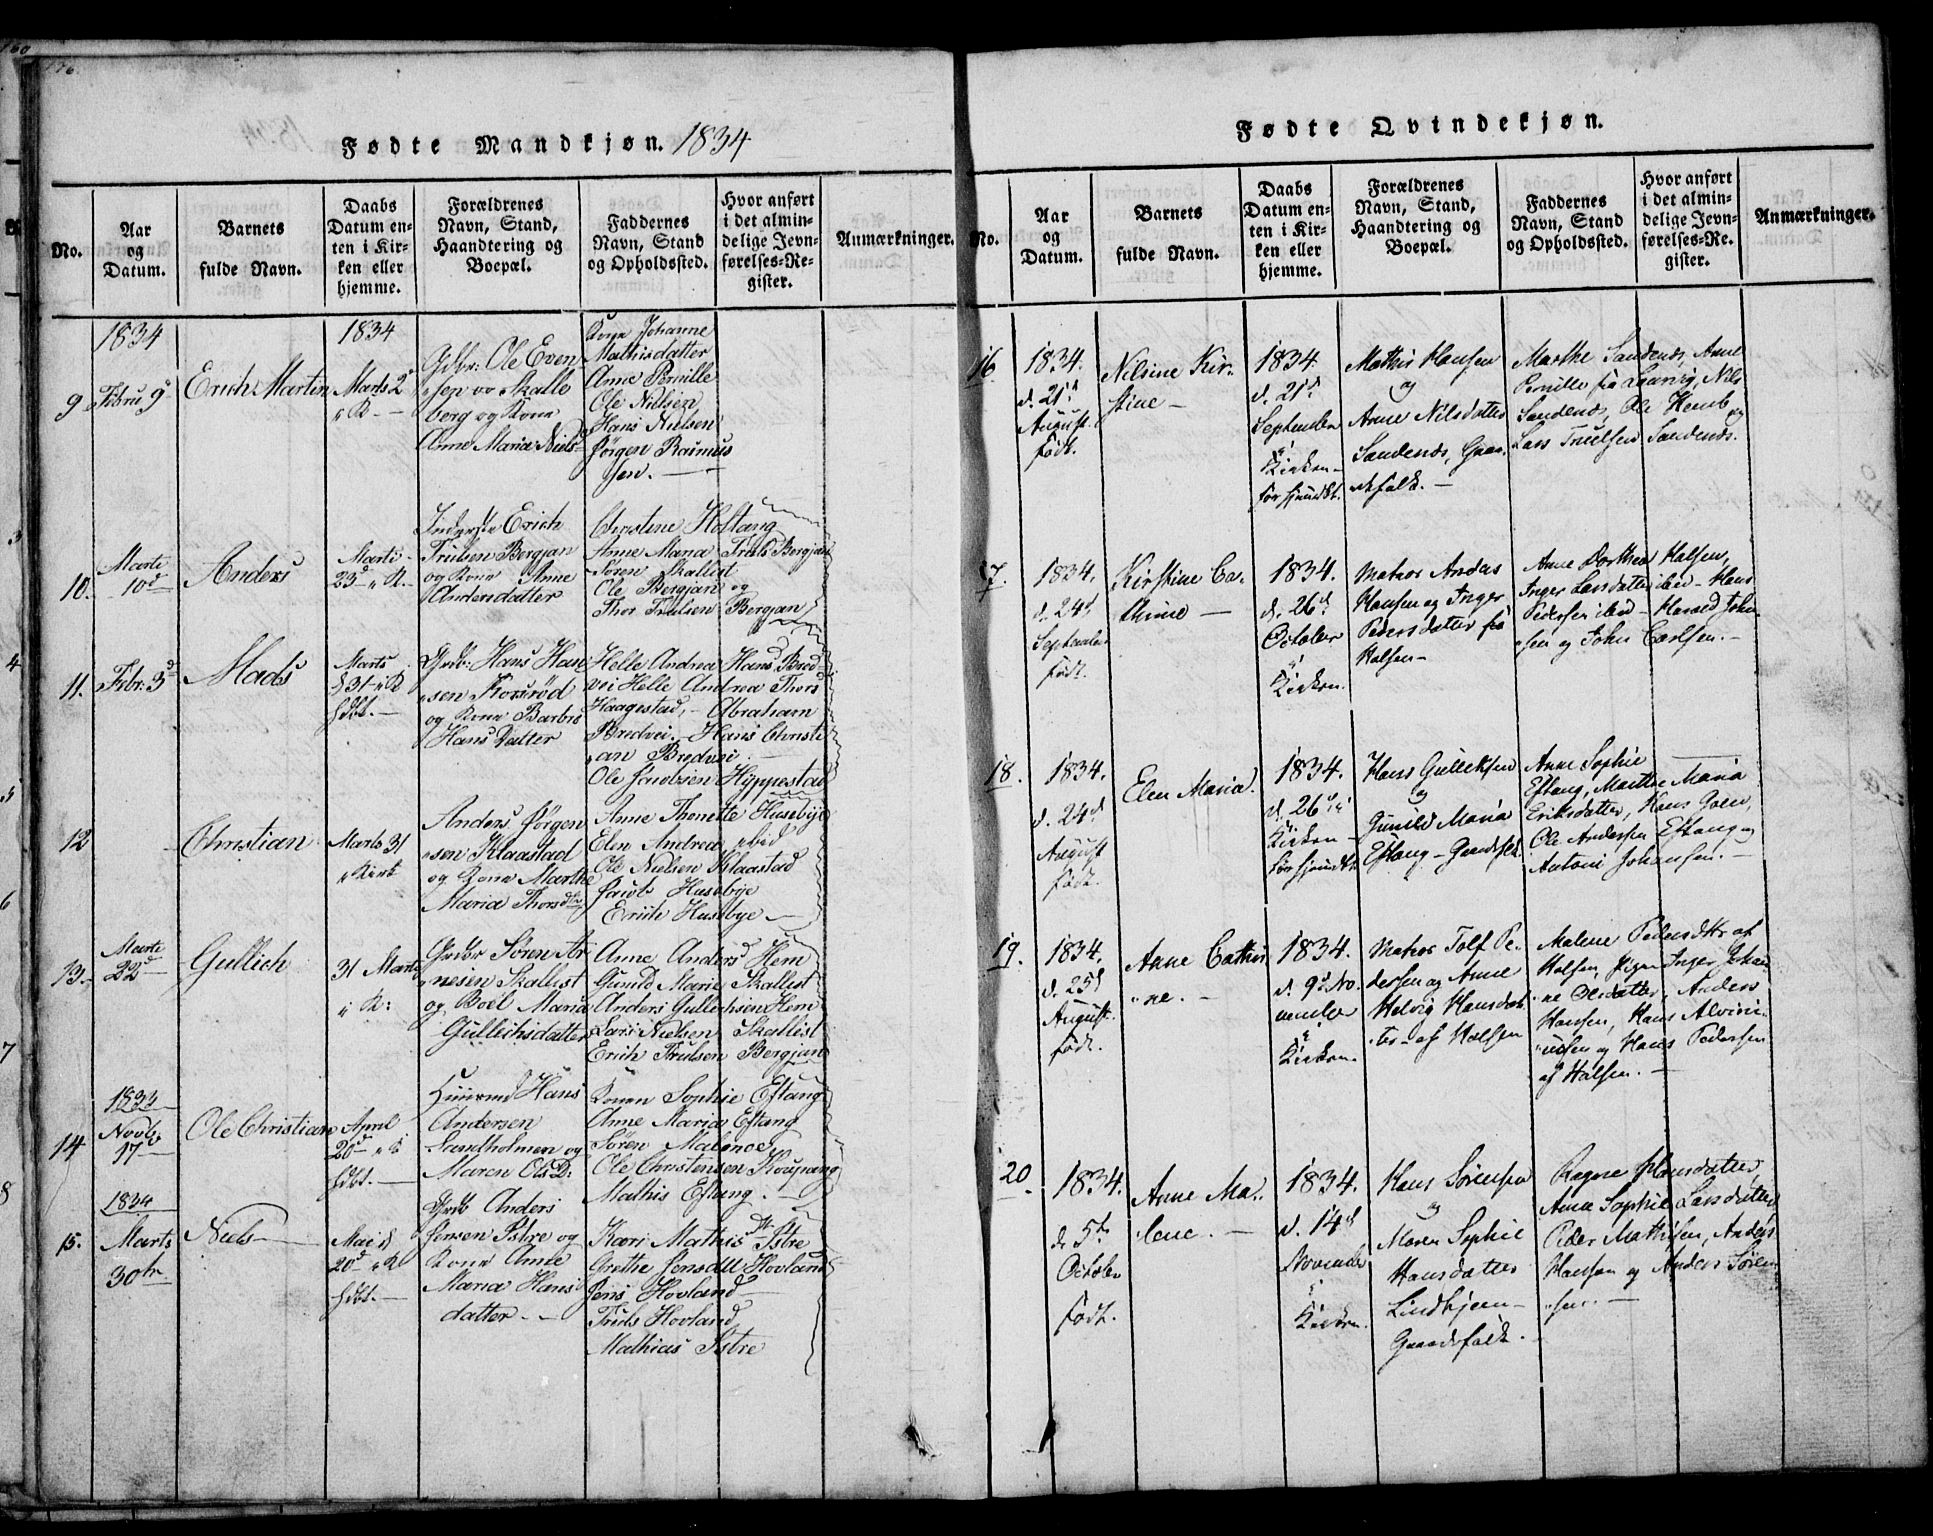 Fødte Mandkjøn. 1834
No.
Aar
og
Datum.
Barnets
fulde Navn.
Daabs
Datum en-
ten i Kir-
ken eller
hjemme.
Forældrenes
Navn, Stand,
Haandtering og
Boepæl.
Faddernes
Navn, Stand
og Opholdssted.
Hvor anført
i det almin-
delige Jevn-
førelses-Re-
gister.
Anmærkninger.
1834
9
Febru 9
Erich Martin
1834
Marts 2
Gdbr: Ole Even
sen Skalle
berg og Kone
Anne Maria Niels
Kone Johanne
Mathisdatter
Anne Pernille
Ole Nielsen
Hans Nielsen
Jørgen Rasmus
sen.
10.
Marts
10d
Anders
Marts
23d i K.
Inderste Erich
Trulsen Bergan
og Kone Anne
Andersdatter
Christine Holtang
Anne Maria Truls Bergan
Søren Skallist
Ole Bergan og
Thor Trulsen Bergan
11.
Febr: 3d
Mads
Marts
31 i K
hdbt.
Grdb: Hans Han
sen Korsrød
og Kone Barbro
Hans Datter
Helle Andrea Hans Bred-
vei Helle Andrea Thors
Haagestad, Abraham
Bredvei. Hans Christi
an Bredvei
Ole Jonassen Hyppestad
12
Christian
Marts 31
i Kirk
Anders Jørgen
sen Klaastad
og Kone Marthe
Maria Thorsdtr
Anne Thonette Husebye
Elen Andrea ibid
Ole Nielsen Klaastad
Jacob Husebye
Erich Husebye
13.
Marts
22d
Gullich
31 Marts
i K:
Grdbr Søren Ar
nesen Skallist
og Boel Maria
Gullichsdatter
Anne Anders Hem
Gunild Marie Skallist
Anders Gullichsen Hem
Lars Nielsen Skallist
Erich Trulsen Bergan
14
1833
Novbr
17
Ole Christian
April
20d i K
hdbt.
Huusmd Hans
Andersen
Sandholmen og
Maren Ols D:
Konen Sophie Eftang
Anne Maria Eftang
Søren Malenoe
Ole Christensen Kaupang
Mathis Eftang.
15.
1834
Marts
30te
Niels
Mai d
20d i K
hdbt.
Grdb Anders
Jensen Istre og
Kone Anne
Maria Hans
datter
Kari Mathis Dtr Istre
Grethe Jonsdtt Hovland
Jens Hovland
Truls Hovland
Mathias Istre
Fødte Qvindekjøn.
No.
Aar
og
Datum.
Barnets
fulde Navn.
Daabs
Datum en-
ten i Kir-
ken eller
hjemme.
Forældrenes
Navn, Stand,
Haandtering og
Boepæl.
Faddernes
Navn, Stand
og Opholdssted.
Hvor anført
i det almin-
delige Jevn-
førelses-Re-
gister.
Anmærkninger.
16
1834.
d. 21d
August.
født.
Nilsine Kir-
stine
1834.
d. 21d
September
i
Kirken
før hjemdbt.
Mathis Hansen
og
Anne Nilsdatter
Sandenes, Gaar-
defolk.
Marthe Sandenes, Anne
Pernille fra Laurvig, Nils
Sandenes, Ole Hemb og
Lars Truelsen Sandenes.
17.
1834.
d. 24d
September
født.
Kirstine Ca-
thrine
1834.
d. 26d
October
i
Kirken.
Matros Anders
Hansen og Inger
Pedersdatter fra
Halsen
Anne Dorthea Halsen,
Inger Larsdatter ibid - Hans
Pedersen ibid - Harald John
sen og John Carlsen.
18.
1834.
d. 24d
August
født.
Elen Maria.
1834.
d. 26d i
Kirken
før hjemdbt
Hans Gulliksen
og
Gunild Maria
Eftang - Gaardfolk
Anne Sophie
Eftang, Marthe Maria
Eriksdatter, Hans Goen,
Ole Andersen Eftang og
Antoni Johansen.
19.
1834.
d. 25d
August.
født.
Anne Cathri
ne.
1834.
d. 9d No-
vember
i
Kirken.
Matros Tolf Pe-
dersen og Anne
Helvig Hansdat-
ter af Halsen
Malene Pedersdttr af
Halsen, Pigen Inger Johan
ne Olsdatter, Anders
Hansen, Hans Alvini-
usen og Hans Pedersen
af Halsen.
20
1834.
d. 5te
October
født.
Anne Ma-
lene.
1834.
d. 14d
November
i
Kirken.
Hans Sørensen
og
Maren Sophie
Hansdatter
Lindhjem
Gaardefolk.
Ragne Hansdatter
Anne Sophie Larsdatter
Peder Mathisen, Anders
Hansen og Anders Søren
sen.